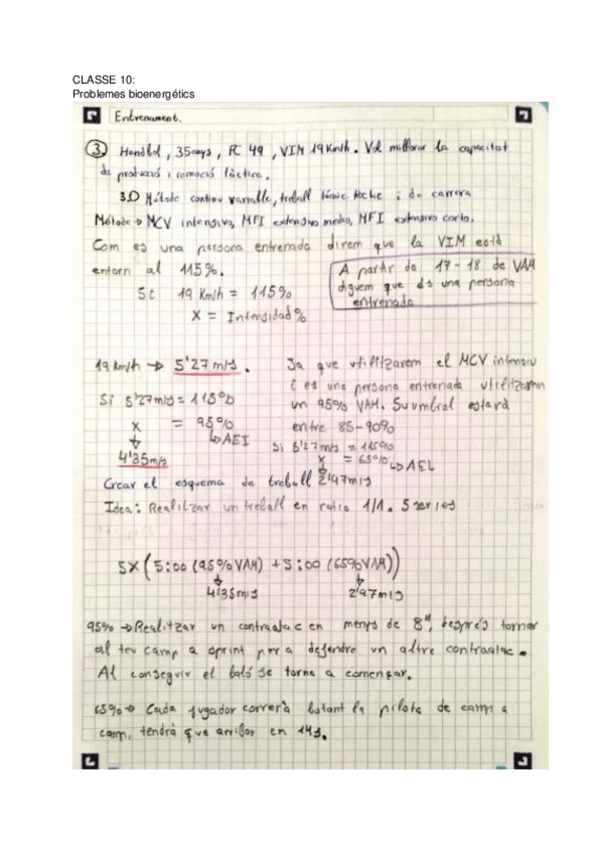 CLASSE 10:
Problemes bioenergétics
Entrenament.
3 Handbol, 35 anys, FC 49, VIM 19 Km/h. Vol millorar la capacitat
de producció i remoció làctica.
3.0 Método continu variable, treball tècnic tàctic i de carrera
Métode → MCV intensivo, MFI extensivo medio, MFI extensivo corto.
Com es una persona entrenada direm que la VIM està
entorn al 115%.
A partir de 17-18 de VAM
diguem que és una persona
entrenada
Si 19 Km/h = 115%
X = Intensidad%
19 km/h → 5'27 m/s.
Ja que utilitzarem el MCV intensiu
i es una persona entrenada utilitzarem
un 95% VAM. Su umbral estarà
entre 85-90%
Si 5'27m/s = 115%
x = 95%
↳ AEI
4'35m/s
Si 5'27m/s = 115%
x = 65% ↳ AEL
2'97m/s
Crear el esquema de treball
Idea: Realitzar un treball en ratio 1/1. 5 series
5x (5:00 (95% VAM) + 5:00 (65% VAM))
4'35m/s 2'97m/s
95% → Realitzar un contraatac en menys de 8", després tornar
al teu camp a sprint per a defendre un altre contraatac.
Al conseguir el baló se torna a començar.
65% → Cada jugador correrà botant la pilota de camp a
camp, tendrà que arribar en 14s.